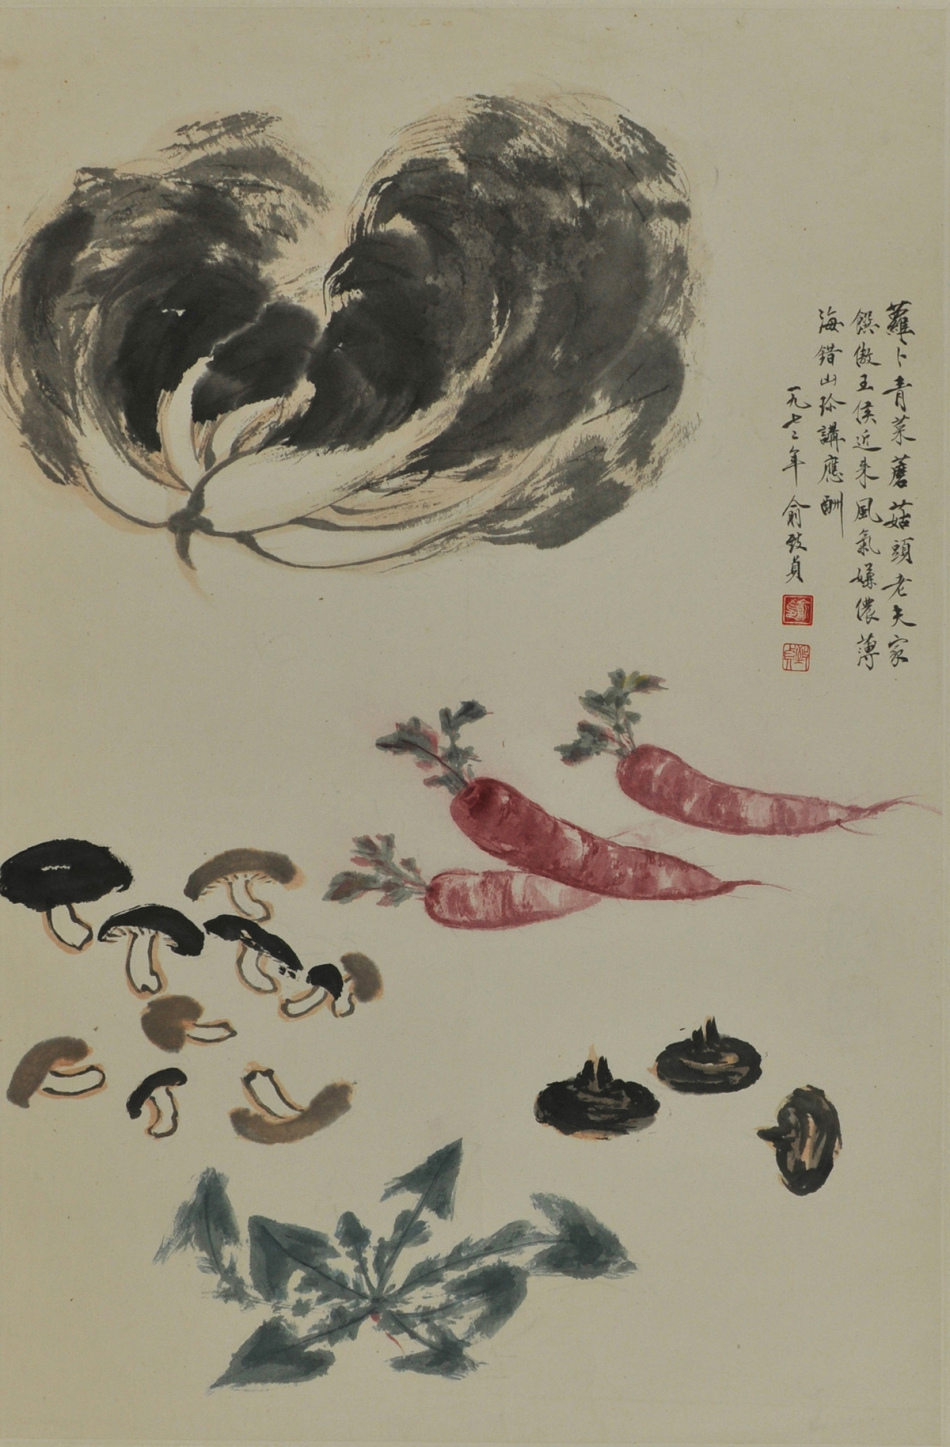 蘿卜青菜蘑菇頭老夫家
饌傲王侯近来風氣嫌儂薄
海錯山珍講應酬
一九七二年 俞致貞